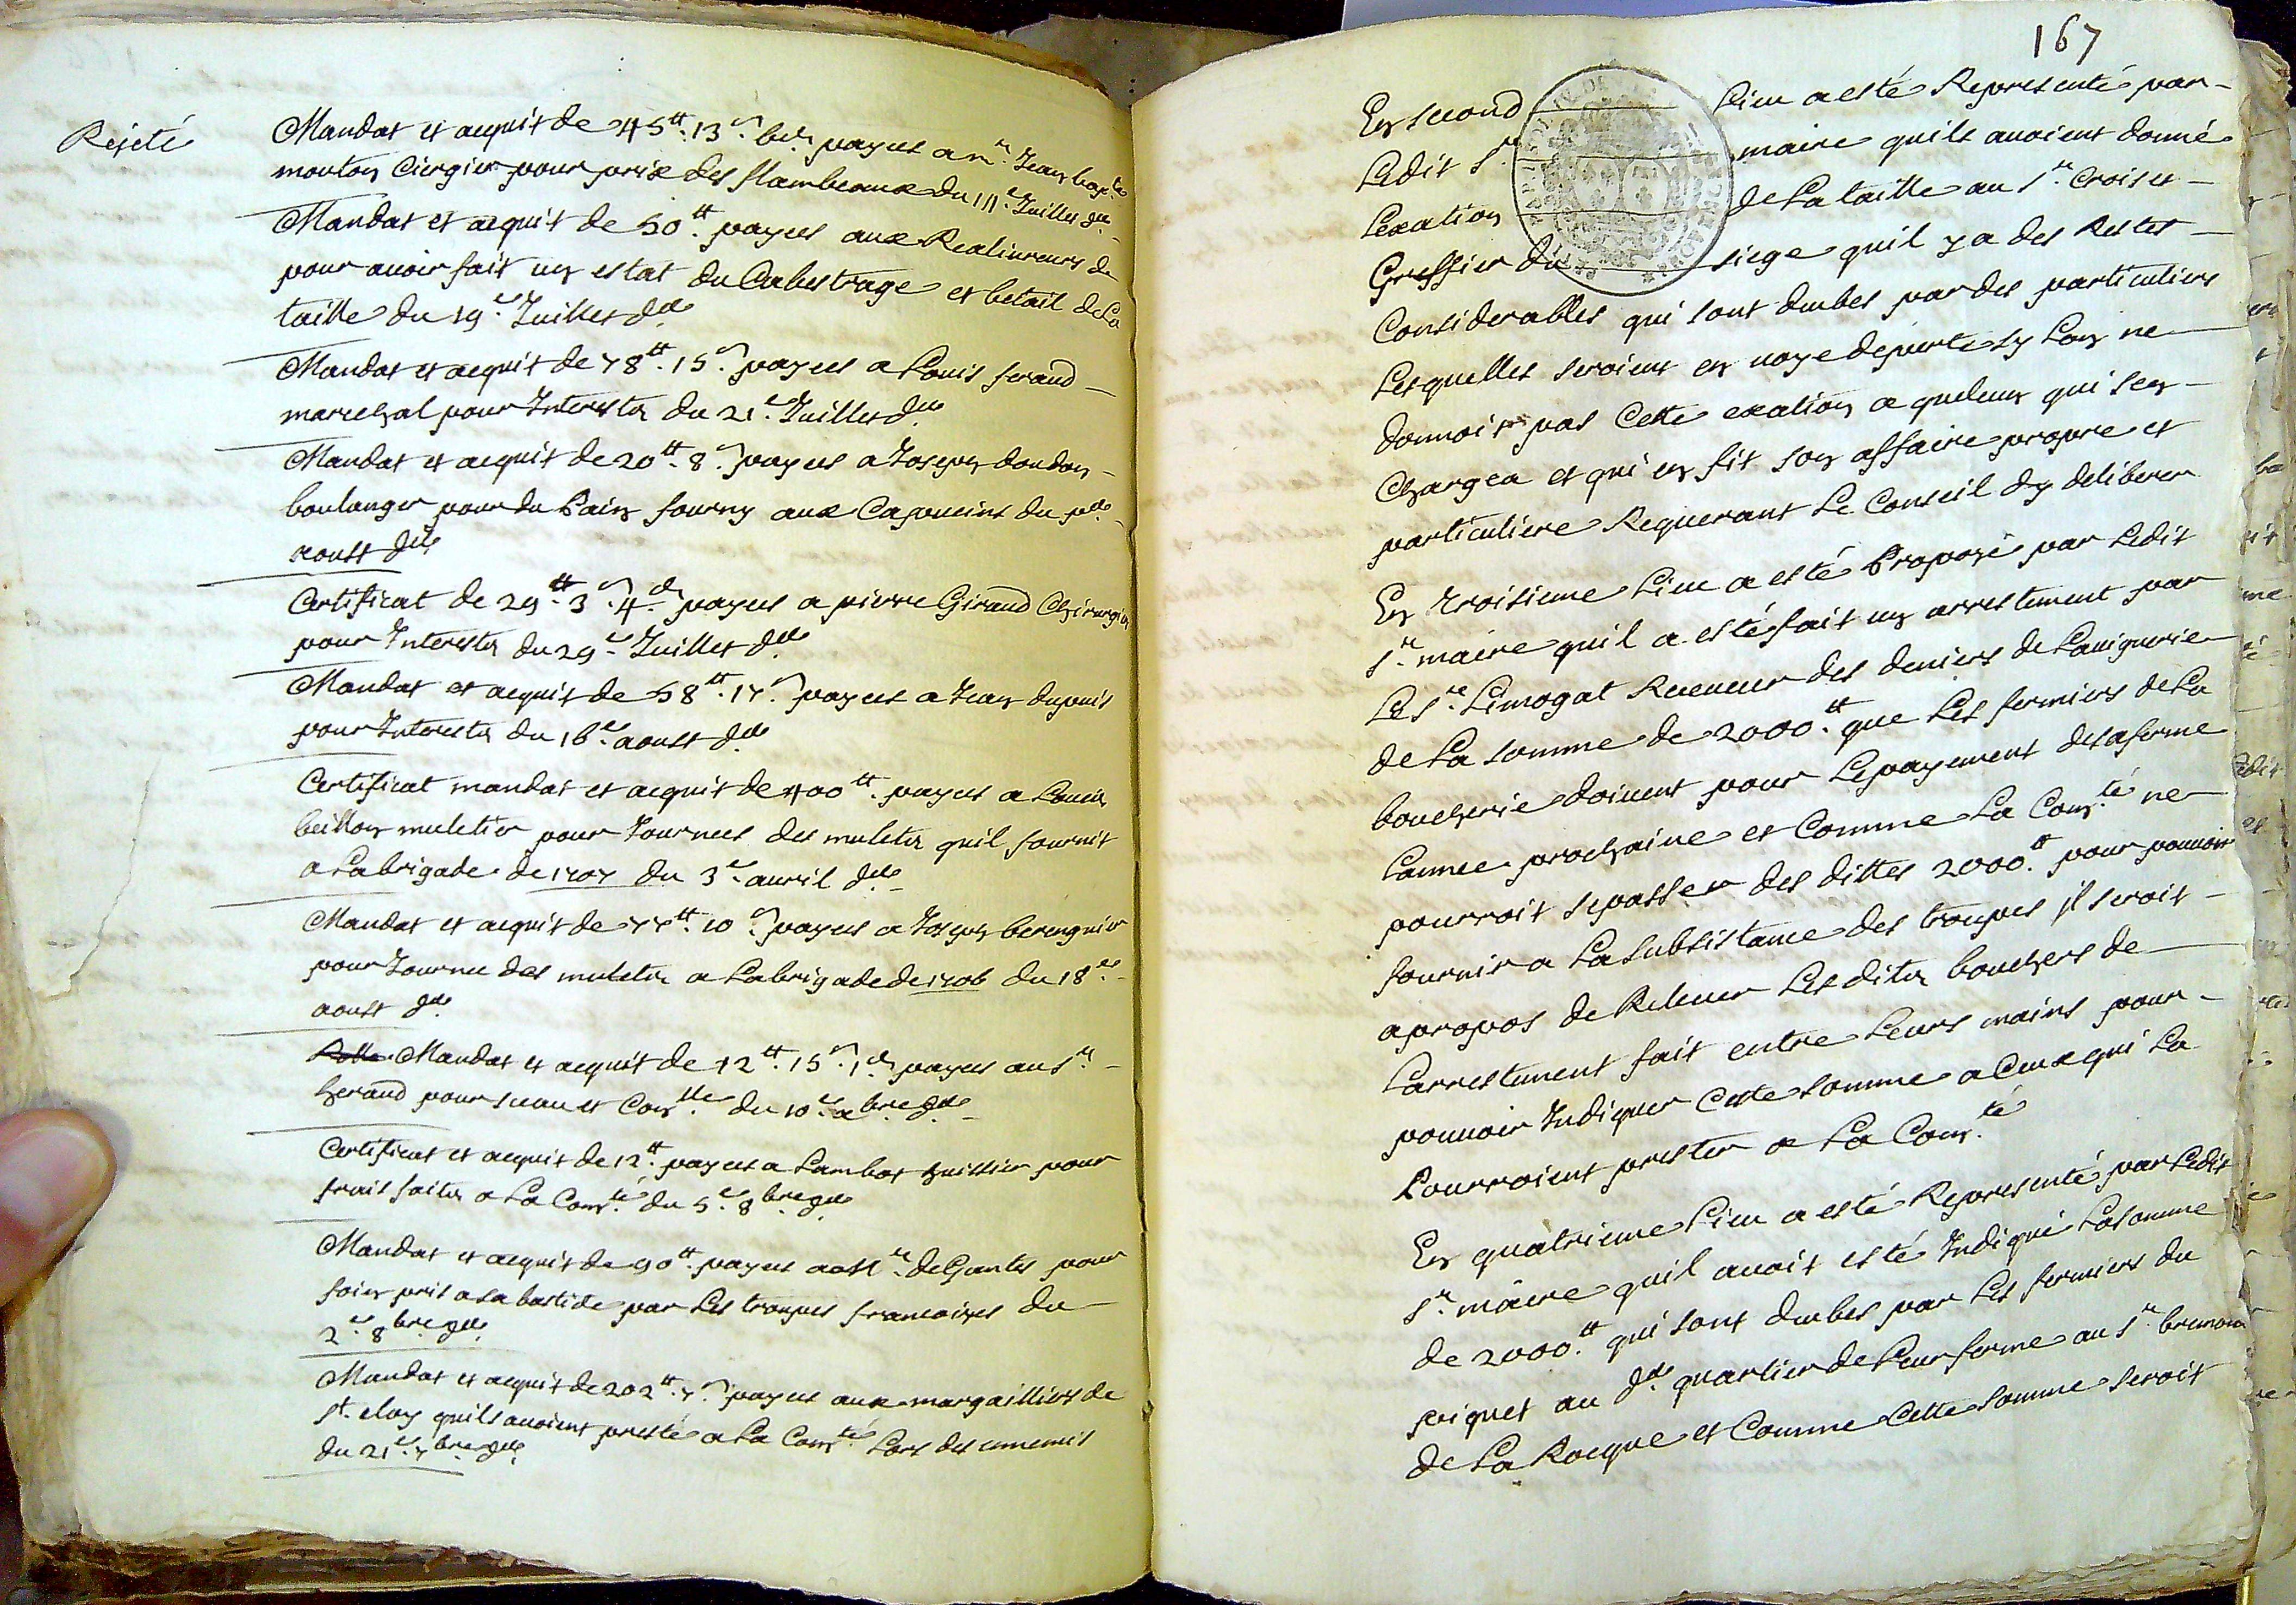 Rejeté
Mandat et acquit de 45tt. 13s. 6d. payees a mre. Jean bapte.
mouton Ciergier pour prix des flambeaux du 111e. Juillet dt.
Mandat et acquit de 50tt. payees aux Realivreurs de
pour avoir fait un estat du Cabestrage et betail de La
taille du 19e. Juillet dt.
Mandat et acquit de 78tt. 15s. payees a Louis feraud
marechal pour Interets du 21e. Juillet dt.
Mandat et acquit de 20tt. 8s. payees a Joseph dondon
boulanger pour du Pain fourny aux Capucins du pr.
aoust dt.
Certificat de 29tt. 3s. 4d. payees a pierre Giraud Chirurgien
pour Interets du 29e. Juillet dt.
Mandat et acquit de 58tt. 17s. payees a Jean dupuis
pour Interets du 16e. aoust dt.
Certificat mandat et acquit de 400tt. payees a Louis
beillon muletier pour Journees des mulets quil fournit
a La brigade de 1707 du 3e. avril dt.
Mandat et acquit de 77tt. 10s. payees a Joseph berenguier
pour Journee des mulets a La brigade de 1706 du 18e.
aoust dt.
Mandat et acquit de 12tt. 15s. 1d. payees au Sr.
heraud pour sceau et Conlle. du 10e. bre. dt.
Certificat et acquit de 12tt. payees a Lambot huissier pour
frais faits a La Comté. du 5e. 8bre. dt.
Mandat et acquit de 90tt. payees a Mr. de Gantes pour
foin pris a sa bastide par Les troupes francoises du
2e. 8bre. dt.
Mandat et acquit de 202tt. 7s. payees aux margailliers de
st. eloy quils avoient presté a La Comté. Lors des ennemis
du 21e. 7bre. dt.
167
En second Lieu a esté Representé par
Ledit Sr. maire quils avoient donné
Lexation de La taille au Sr. Croiset
Greffier du siege quil y a des Restes
Considerables qui sont deubes par des particuliers
Lesquelles seroient en voye de perte sy Lon ne
donnoit pas Cette exation a quelcun qui sen
Chargea et qui en fit son affaire propre et
particuliere Requerant Le Conseil dy deliberer
En troisieme Lieu a esté Proposé par Ledit
Sr. maire quil a esté fait un arrestement par
Le Sr. Limogat Receveur des deniers de Laviguerie
de La somme de 2000tt. que Les fermiers de La
boucherie doivent pour Lepayement de saferme
Lannee prochaine et Comme La Comté. ne
pourroit sepasser des dittes 2000tt. pour pouvoir
fournir a La subsistance des troupes jl seroit
apropos de Relever Lesdits bouchers de
Larrestement fait entre Leurs mains pour
pouvoir Indiquer Cette somme a Ceux qui La
Pourroient prester a La Comté.
En quatrieme Lieu a esté Representé par Ledit
Sr. maire quil avoit esté Indiqué La somme
de 2000tt. qui sont deubes par Les fermiers du
piquet au dt. quartier de Leur ferme au Sr. bremond
de La Rocque et Comme Cette somme seroit